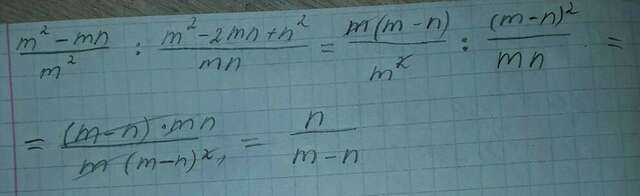 \frac{m^2 - mn}{m^2} : \frac{m^2 - 2mn + n^2}{mn} = \frac{m(m-n)}{m^2} : \frac{(m-n)^2}{mn} =
= \frac{(m-n) \cdot mn}{m(m-n)^2} = \frac{n}{m-n}